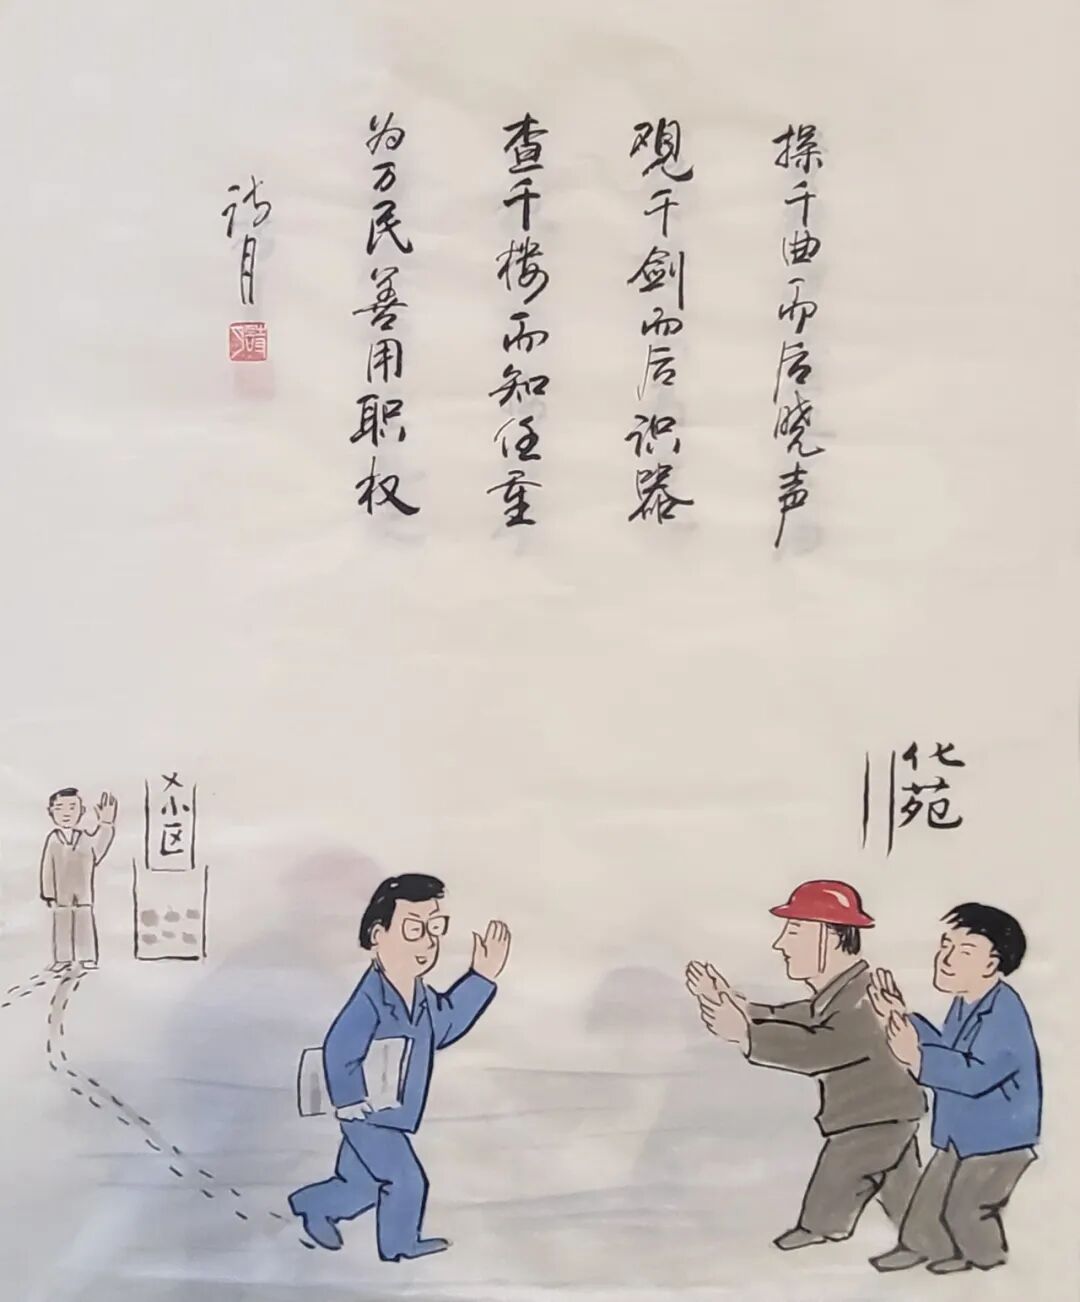 操千曲而后晓声
观千剑而后识器
查千楼而知任重
为万民善用职权
诗月
詩月
×小区
化苑